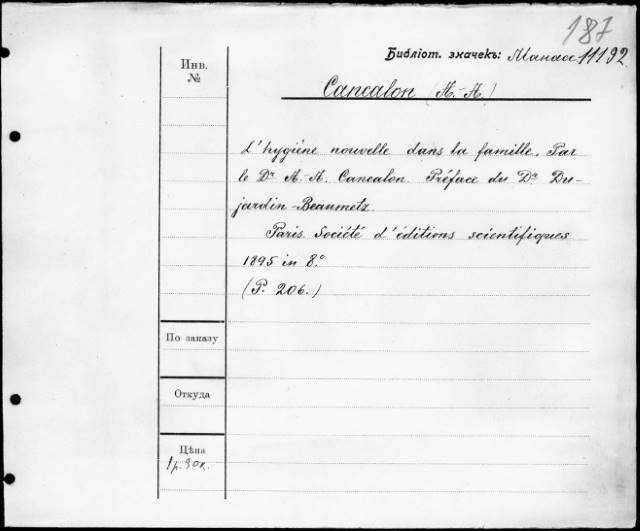 187
Библіот. значекъ: Манаос 11192
Инв.
№
Cancalon (A.-A.)
L'hygiène nouvelle dans la famille. Par
le Dr A.-A. Cancalon. Préface du Dr Du-
jardin-Beaumetz.
Paris. Société d'éditions scientifiques
1895 in 8.°
(P. 206.)
По заказу
Откуда
Цѣна
1р. 90к.